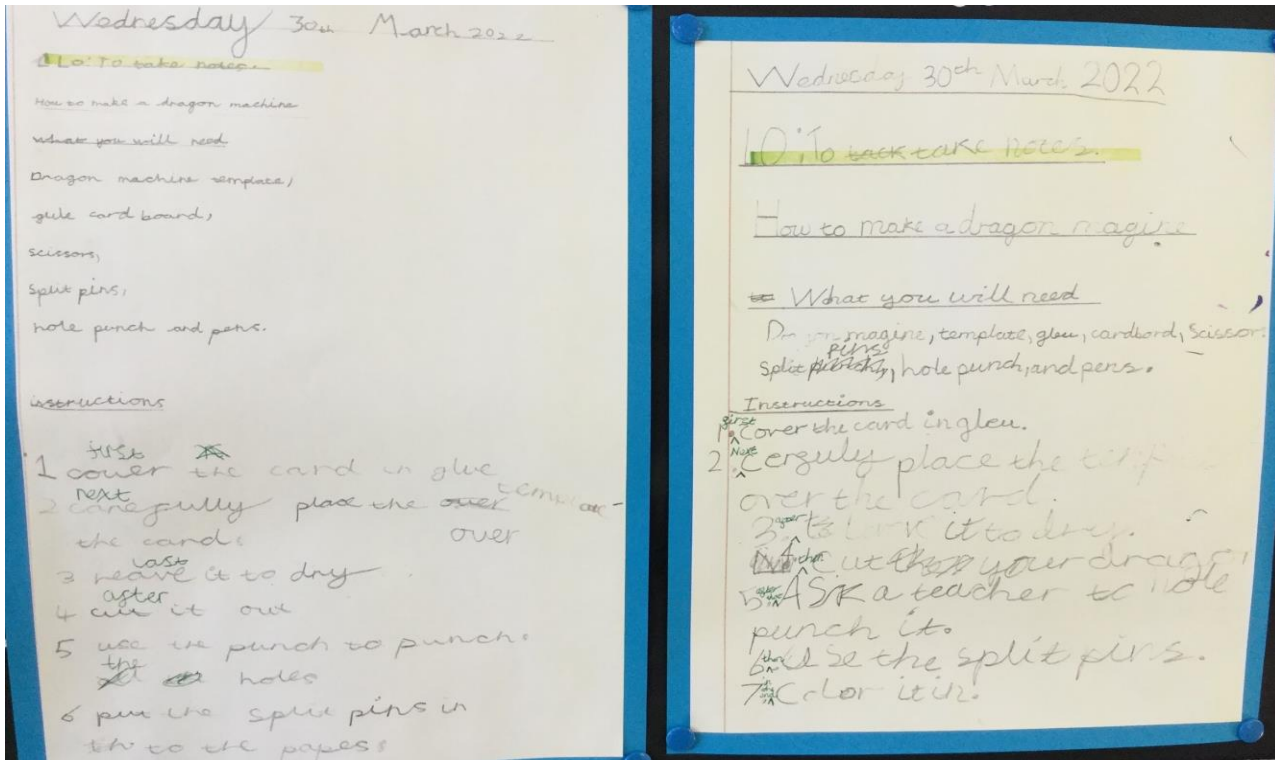 Wednesday 30th March 2022
LO: To take notes.
How to make a dragon machine
what you will need
Dragon machine template,
gule card board,
scissors,
split pins,
hole punch and pens.
instructions
first
1 cover the card in glue
next
2 carefully place the over template
the card. over
last
3 leave it to dry
after
4 cut it out
5 use the punch to punch.
the
holes
6 put the split pins in
th to the papes.
Wednesday 30th March 2022
LO: To tack take notes.
How to make a dragon magine
What you will need
Dragon magine, template, gleu, cardbord, scissor
pins
split, hole punch, and pens.
Instructions
first
1. Cover the card in gleu.
Next
2. Cerfuly place the
over the card.
3. after it to dry.
4 then cut your drago
5 Ask a teacher to hole
punch it.
6 then Use the split pins.
7 Color it in.